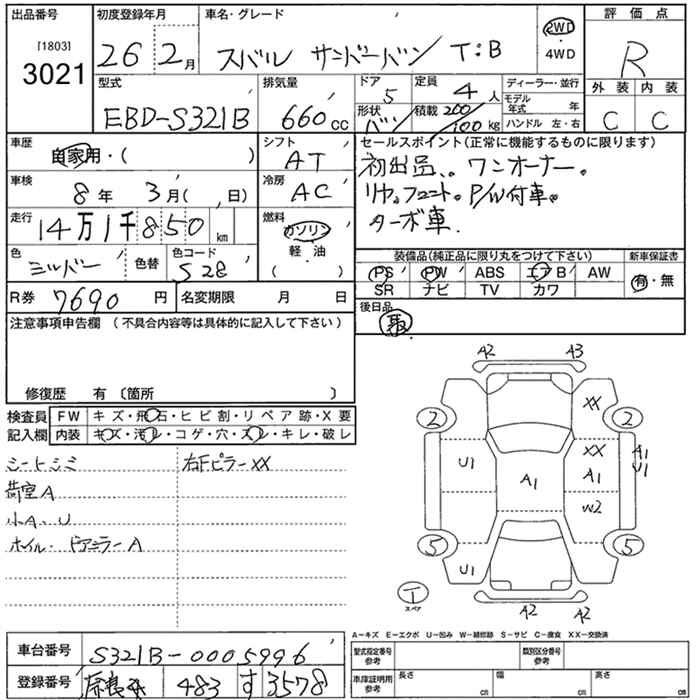 出品番号 初度登録年月 車名・グレード 評価点
[1803]
3021
26年 2月 スバル サンバーバン T:B 2WD・4WD R
型式 排気量 ドア 定員 ディーラー・並行 外装 内装
EBD-S321B 660cc 5 4人 モデル年式 年 C C
形状 バン 積載 200/100kg ハンドル 左・右
車歴 自家用・( ) シフト AT
セールスポイント(正常に機能するものに限ります)
初出品、ワンオーナー。
P/W付車。
ターボ車.
車検 8年 3月( 、日) 冷房 AC
走行 14万1千850km 燃料 ガソリン 軽・油 ( )
色 色替 色コード S28
装備品(純正品に限り丸をつけて下さい) 新車保証書
PS PW ABS エアB AW 有・無
SR ナビ TV カワ
R券 7690円 名変期限 月 日
後日品
注意事項申告欄 (不具合内容等は具体的に記入して下さい)
修復歴 有 〔箇所 〕
検査員記入欄
FW キズ・飛石・ヒビ割・リペア跡・X要
内装 キズ・汚レ・コゲ・穴・スレ・キレ・破レ
シートシミ 右FピラーXX
荷室A
小A、U
ホイル・ドアミラーA
A2 A3
2 XX 2
U1 XX A1 U1
A1 A1
W2
5 5
U1
1 スペア
A2 A2
A-キズ E-エクボ U-凹み W-補修跡 S-サビ C-腐食 XX-交換済
車台番号 S321B-0005996
登録番号 483 す 3578
型式指定番号 参考 類別区分番号 参考
車庫証明用 参考 長さ cm 幅 cm 高さ cm